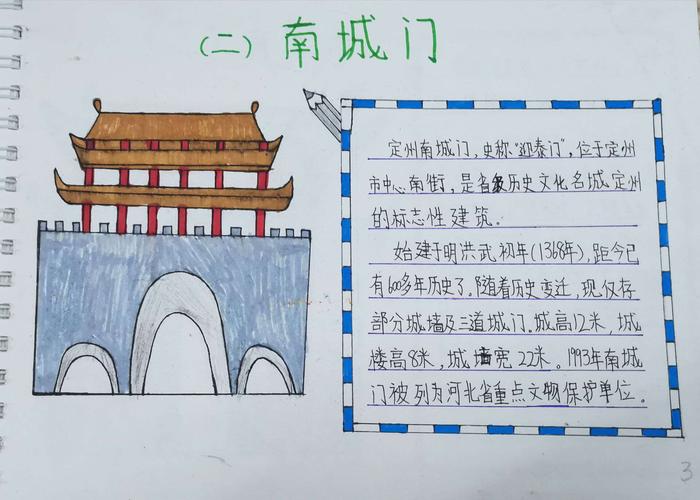 （二）南城门
定州南城门，史称“迎泰门”，位于定州
市中心南街，是省级历史文化名城定州
的标志性建筑。
始建于明洪武初年(1368年)，距今已
有600多年历史了。随着历史变迁，现仅存
部分城墙及三道城门。城高12米，城
楼高8米，城墙宽22米。1993年南城
门被列为河北省重点文物保护单位。
3